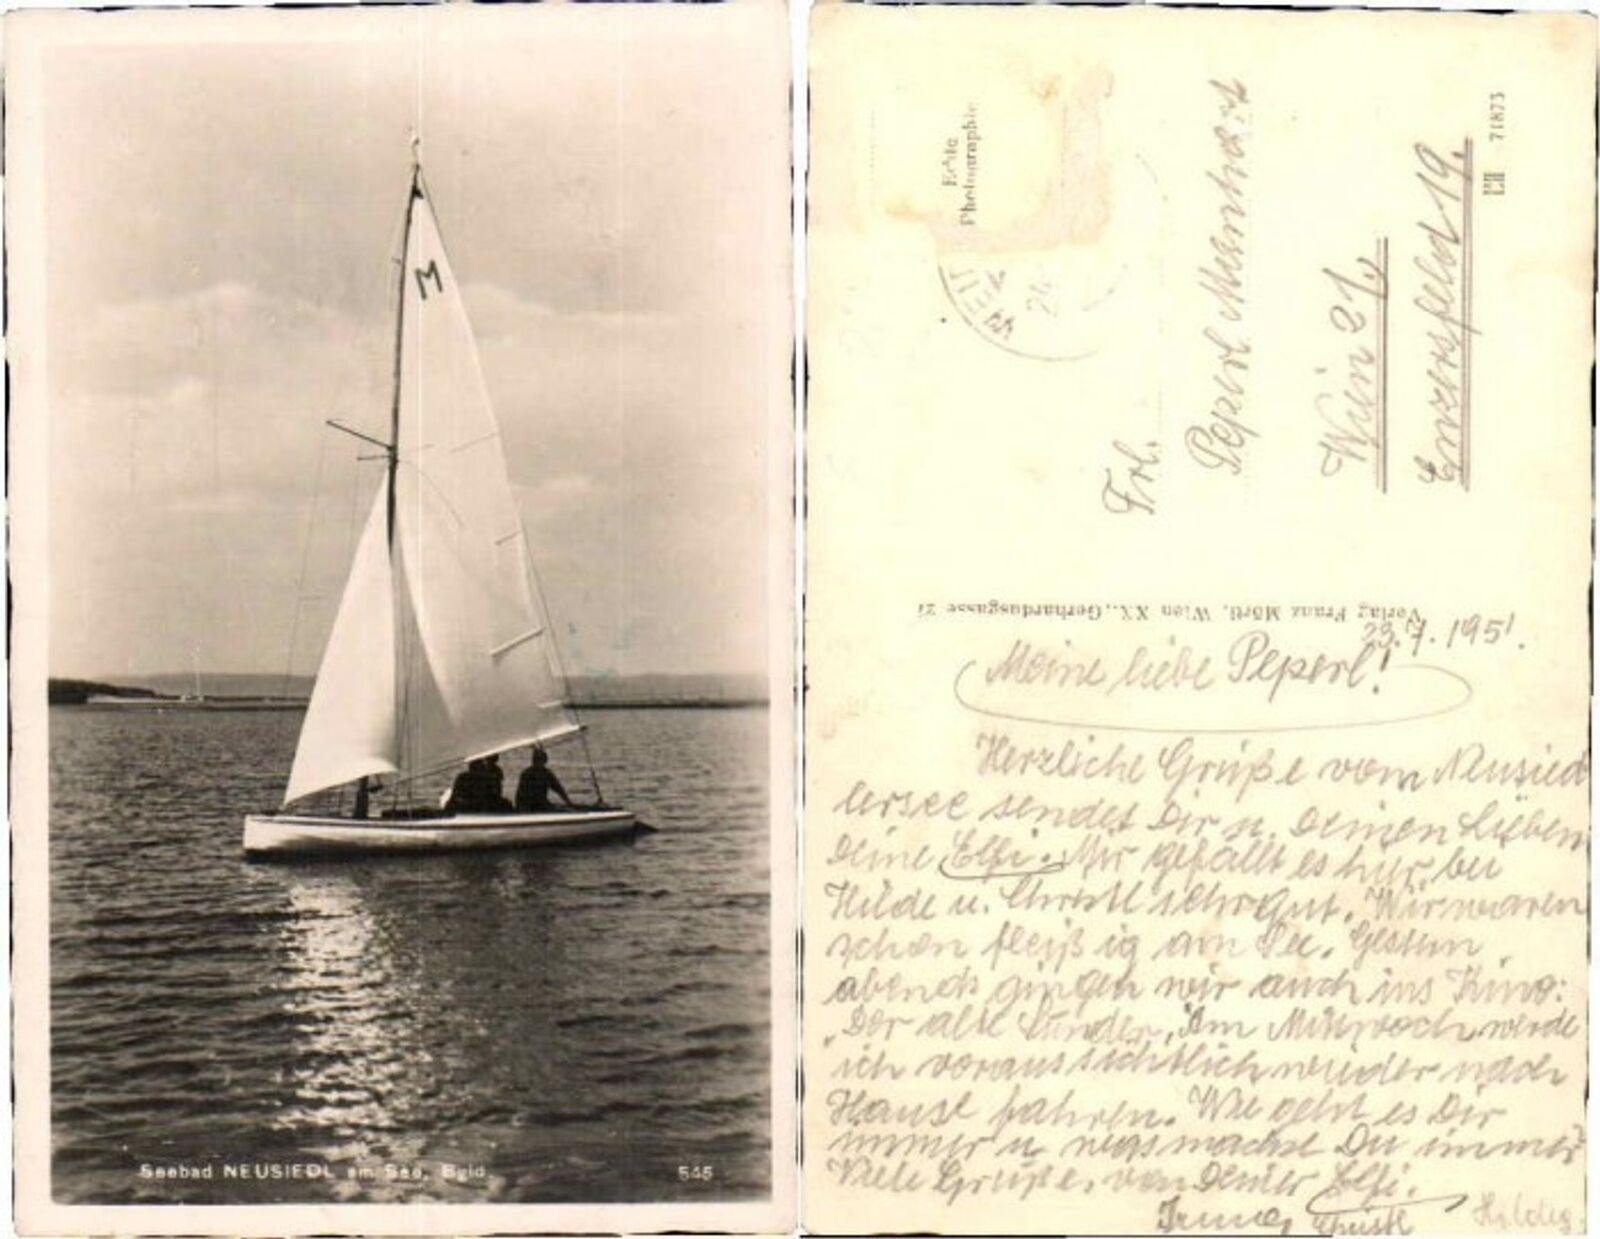 M
Seebad NEUSIEDL am See, Bgld
545
Echte
Photographie
Frl.
Peperl
Wien 21.,
Enzersfeld 19.
71873
Verlag Franz Mörtl, Wien XX., Gerhardusgasse 27
23.7.1951.
Meine liebe Peperl!
Herzliche Grüße vom Neusied
lersee sendet Dir u. Deinen Lieben
Deine Elfi. Mir gefällt es hier bei
Hilde u. Christl sehr gut. Wir waren
schon fleißig am See. Gestern
abends gingen wir auch ins Kino:
"Der alte Sünder". Am Mittwoch werde
ich voraussichtlich wieder nach
Hause fahren. Wie geht es Dir
immer u. was machst Du immer
Viele Grüße, von Deiner Elfi.
Christl Hilde